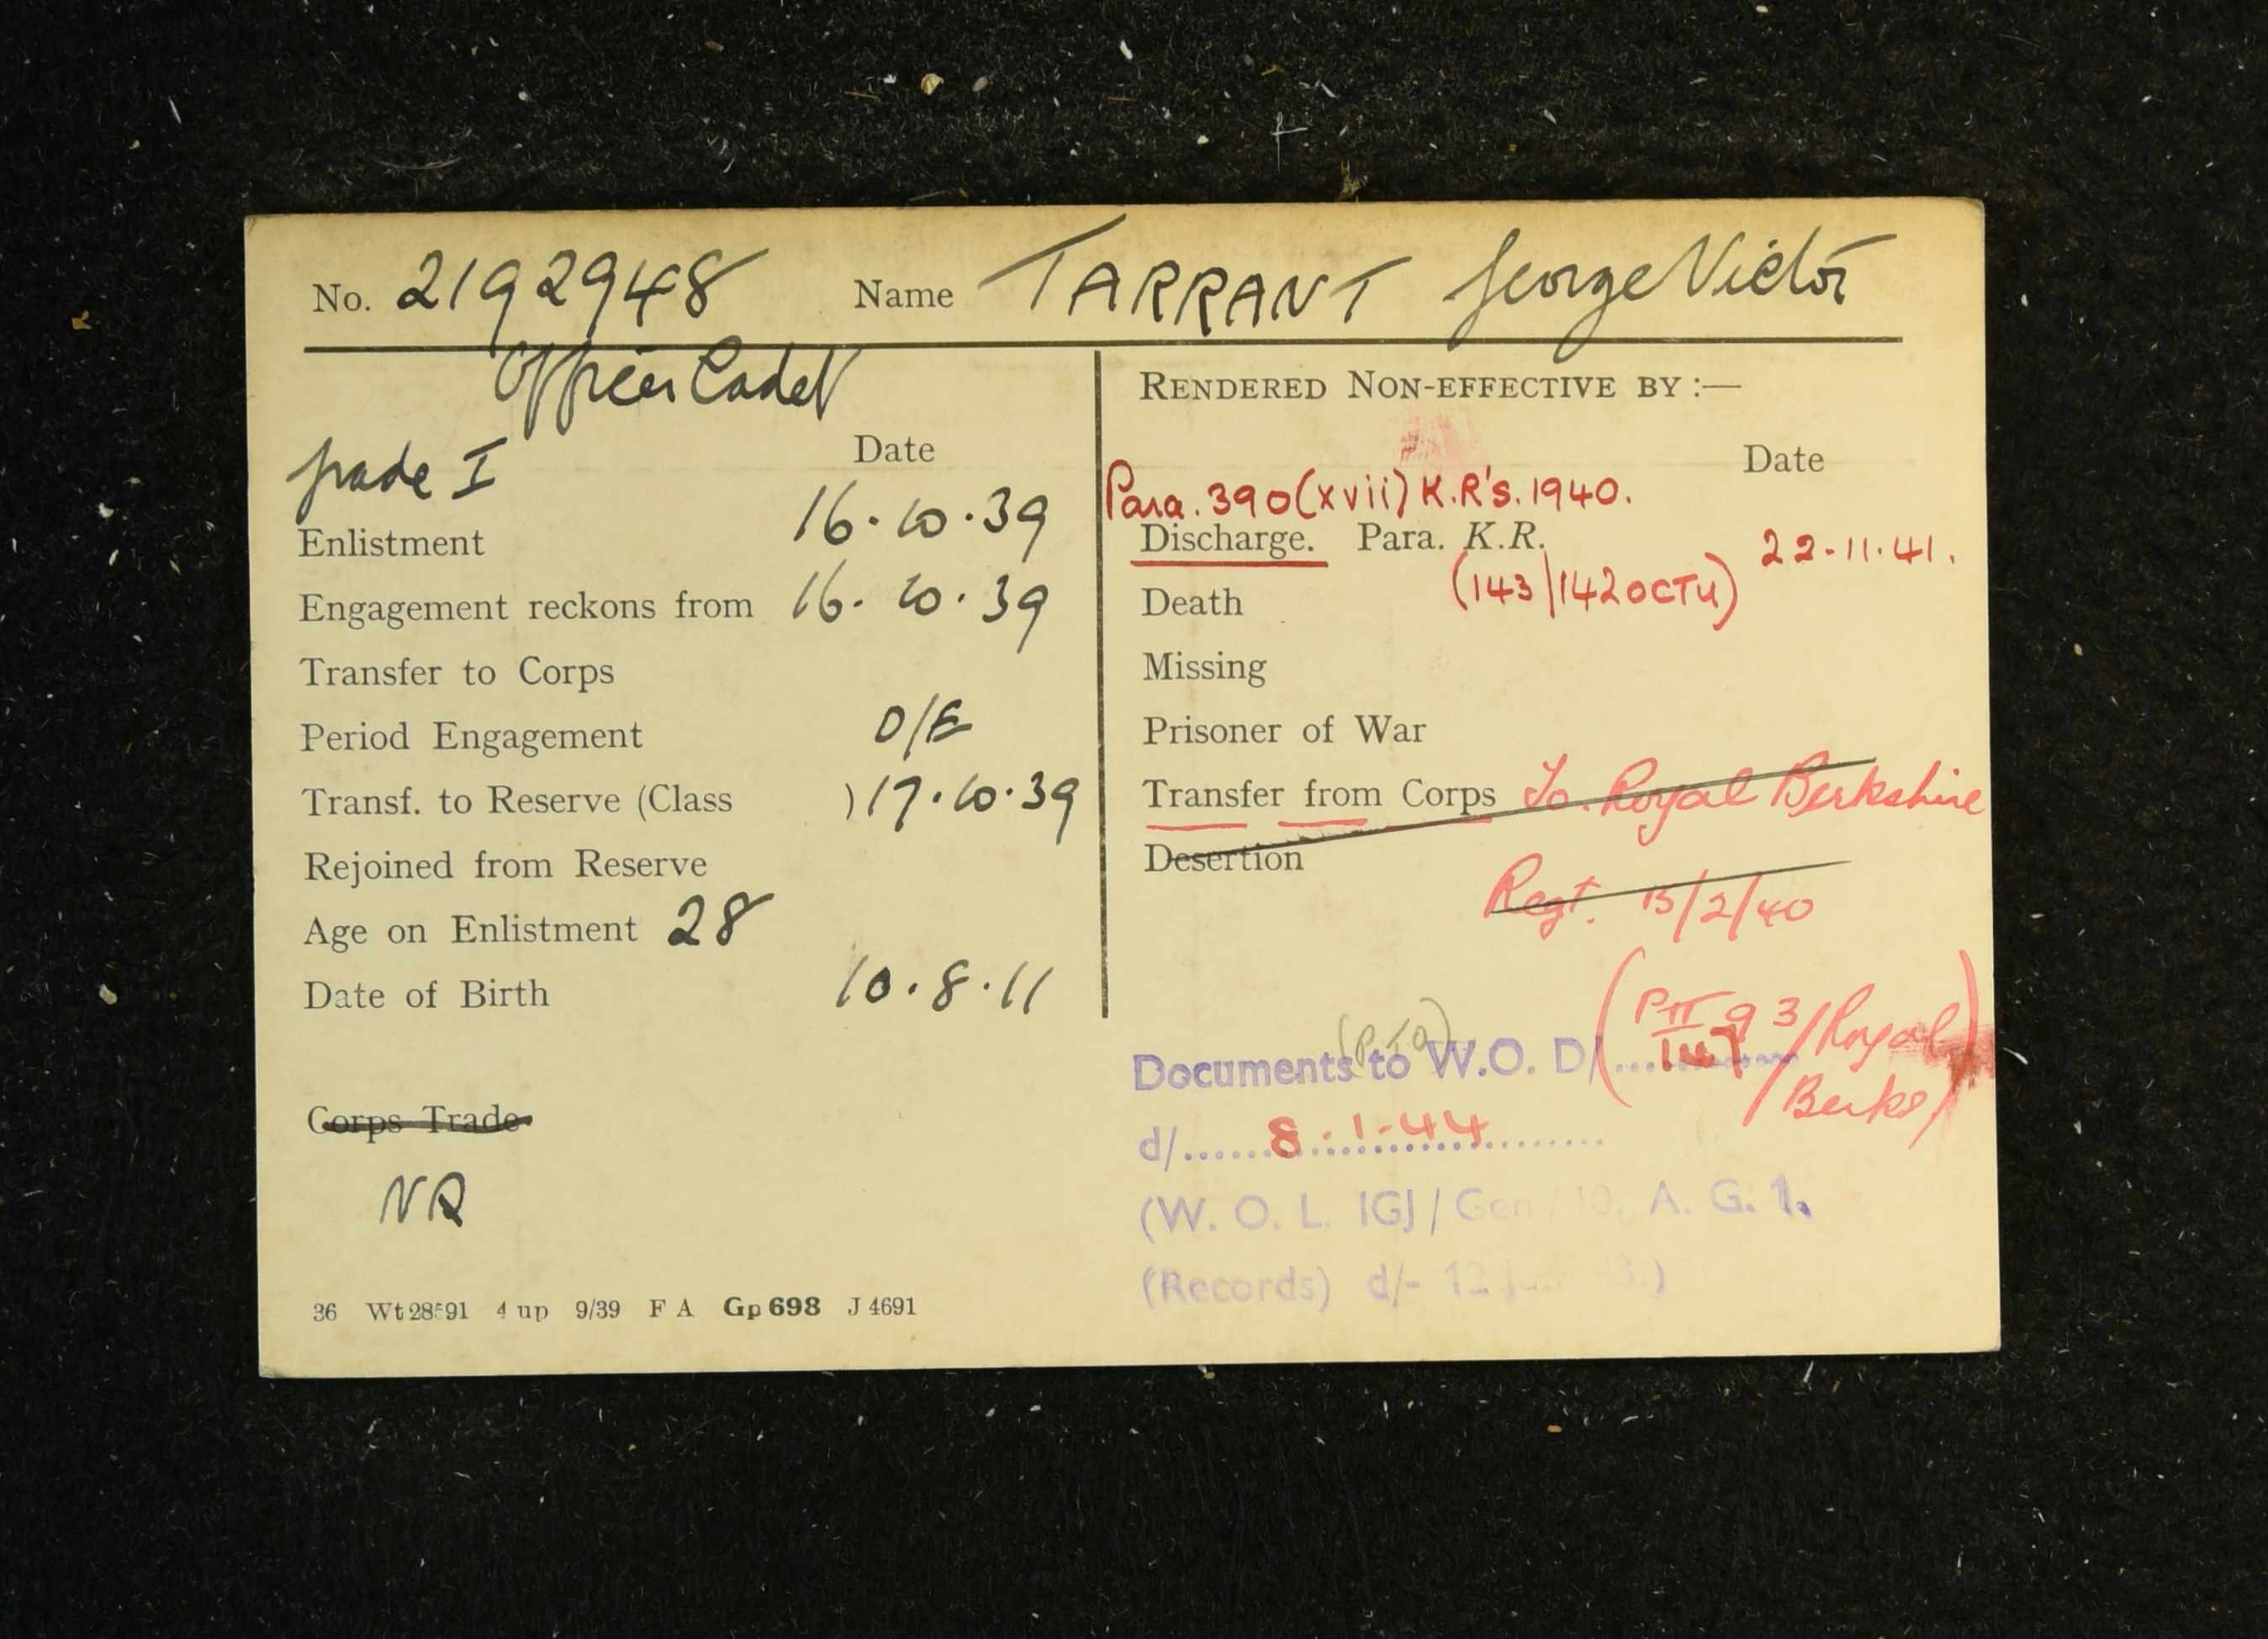 No. 2192948 Name TARRANT George Victor
Officer Cadet
Grade I
Date
Enlistment 16.10.39
Engagement reckons from 16.10.39
Transfer to Corps
Period Engagement D/E
Transf. to Reserve (Class ) 17.10.39
Rejoined from Reserve
Age on Enlistment 28
Date of Birth 10.8.11
Corps Trade
NR
36 Wt 28591 4 up 9/39 F A Gp 698 J 4691
RENDERED NON-EFFECTIVE BY :—
Date
Para. 390(xvii) K.R's. 1940.
Discharge. Para. K.R. 22-11-41.
(143/142 OCTU)
Death
Missing
Prisoner of War
Transfer from Corps To. Royal Berkshire
Desertion
Regt. 15/2/40
(PII 93/Royal
Berks)
(PTO)
Documents to W.O. D/ 147
d/...... 8-1-44
(W. O. L. IGJ / Gen / 10. A. G. 1.
(Records) d/- 12